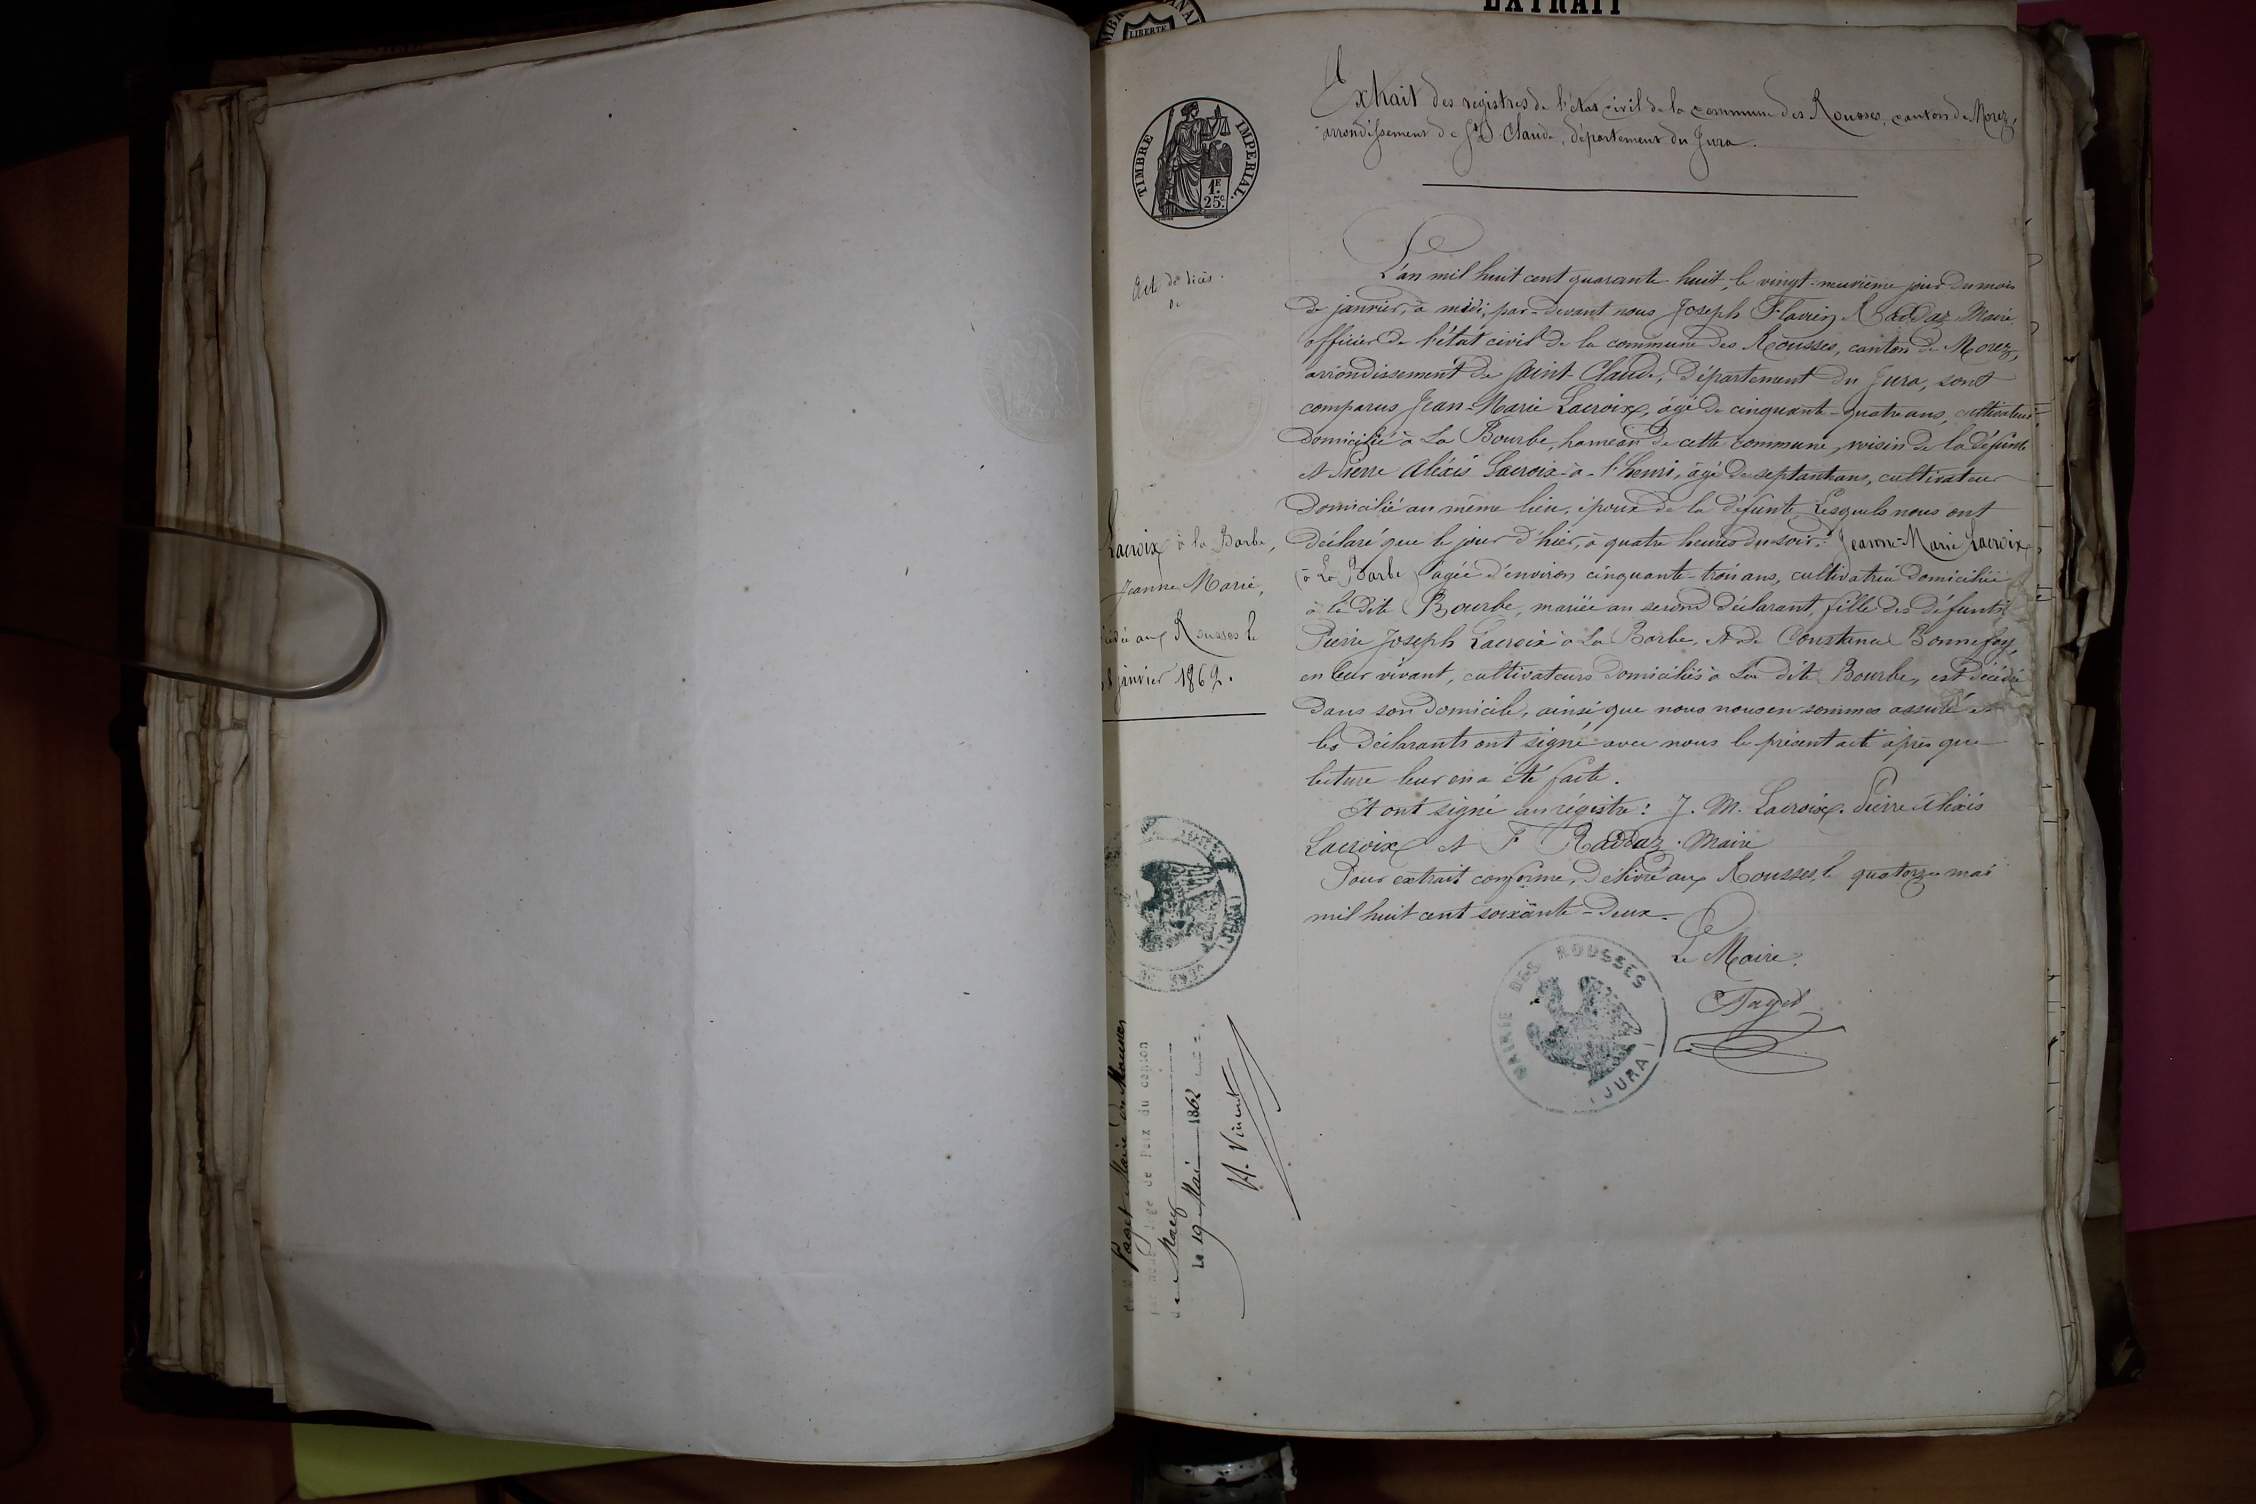 EXTRAIT
LIBERTÉ
TIMBRE IMPERIAL.
1F.
25c.
Extrait des registres de l'état civil de la commune des Rousses, canton de Morez,
arrondissement de St Claude, département du Jura.
Acte de décès.
de
Lacroix à la Barbe,
Jeanne Marie,
aux Rousses le
janvier 1862.
L'an mil huit cent quarante-huit, le vingt-neuvième jour du mois
de janvier, à midi, par-devant nous Joseph Flavien Raddaz Maire
officier de l'état civil de la commune des Rousses, canton de Morez,
arrondissement de Saint-Claude, département du Jura, sont
comparus Jean-Marie Lacroix, âgé de cinquante-quatre ans, cultivateur
domicilié à La Bourbe, hameau de cette commune, voisin de la défunte
et Pierre Aléxis Lacroix-à-l'henri, âgé de septante ans, cultivateur
domicilié au même lieu, époux de la défunte, Lesquels nous ont
déclaré que le jour d'hier, à quatre heures du soir, Jeanne-Marie Lacroix
(à La Barbe) âgée d'environ cinquante-trois ans, cultivatrice domiciliée
à la dite Bourbe, mariée au second déclarant, fille des défunts
Pierre Joseph Lacroix à La Barbe, et de Constance Bonnefoy,
en leur vivant, cultivateurs domiciliés à La dite Bourbe, est décédée
dans son domicile, ainsi que nous nous en sommes assuré et
les déclarants ont signé avec nous le présent acte après que
lecture leur en a été faite.
Et ont signé au régistre: J. M. Lacroix. Pierre Aléxis
Lacroix et F Raddaz. Maire
Pour extrait conforme, délivré aux Rousses, le quatorze mai
mil huit cent soixante-deux.
Le Maire.
Paget
MAIRIE DES ROUSSES
(JURA)
(JURA)
Paget Maire des Rousses
Juge de Paix du canton
de Morez
Le 19 Mai 1862
H. Vincent